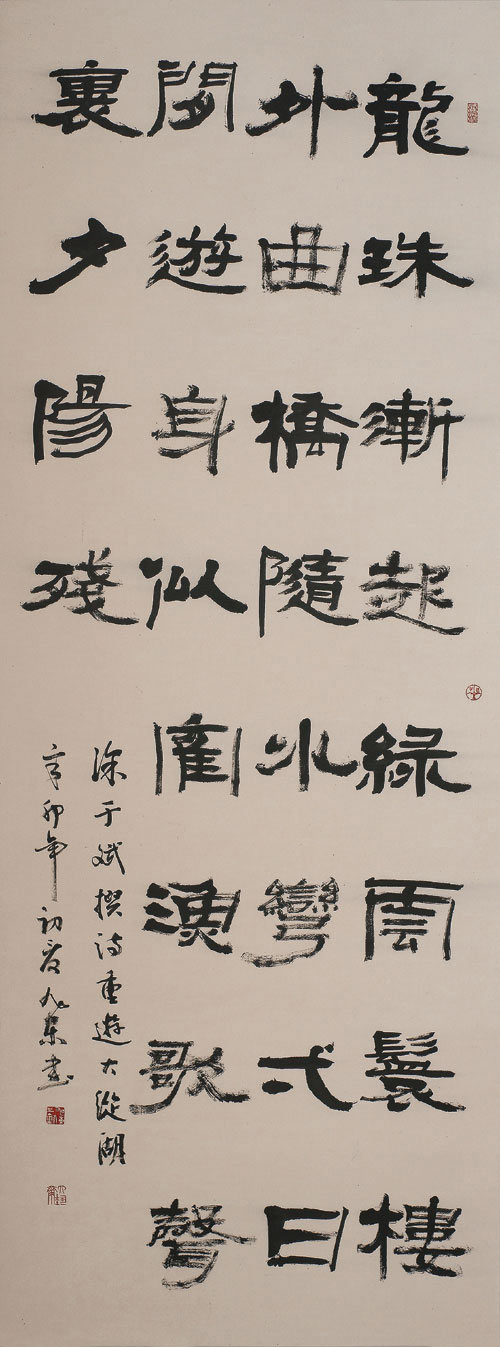 龍珠漸起綠雲鬟樓
外曲橋隨水彎弌日
閒遊身似隺漁歌聲
裏夕陽殘
徐于斌撰詩重遊大縱湖
辛卯年初書